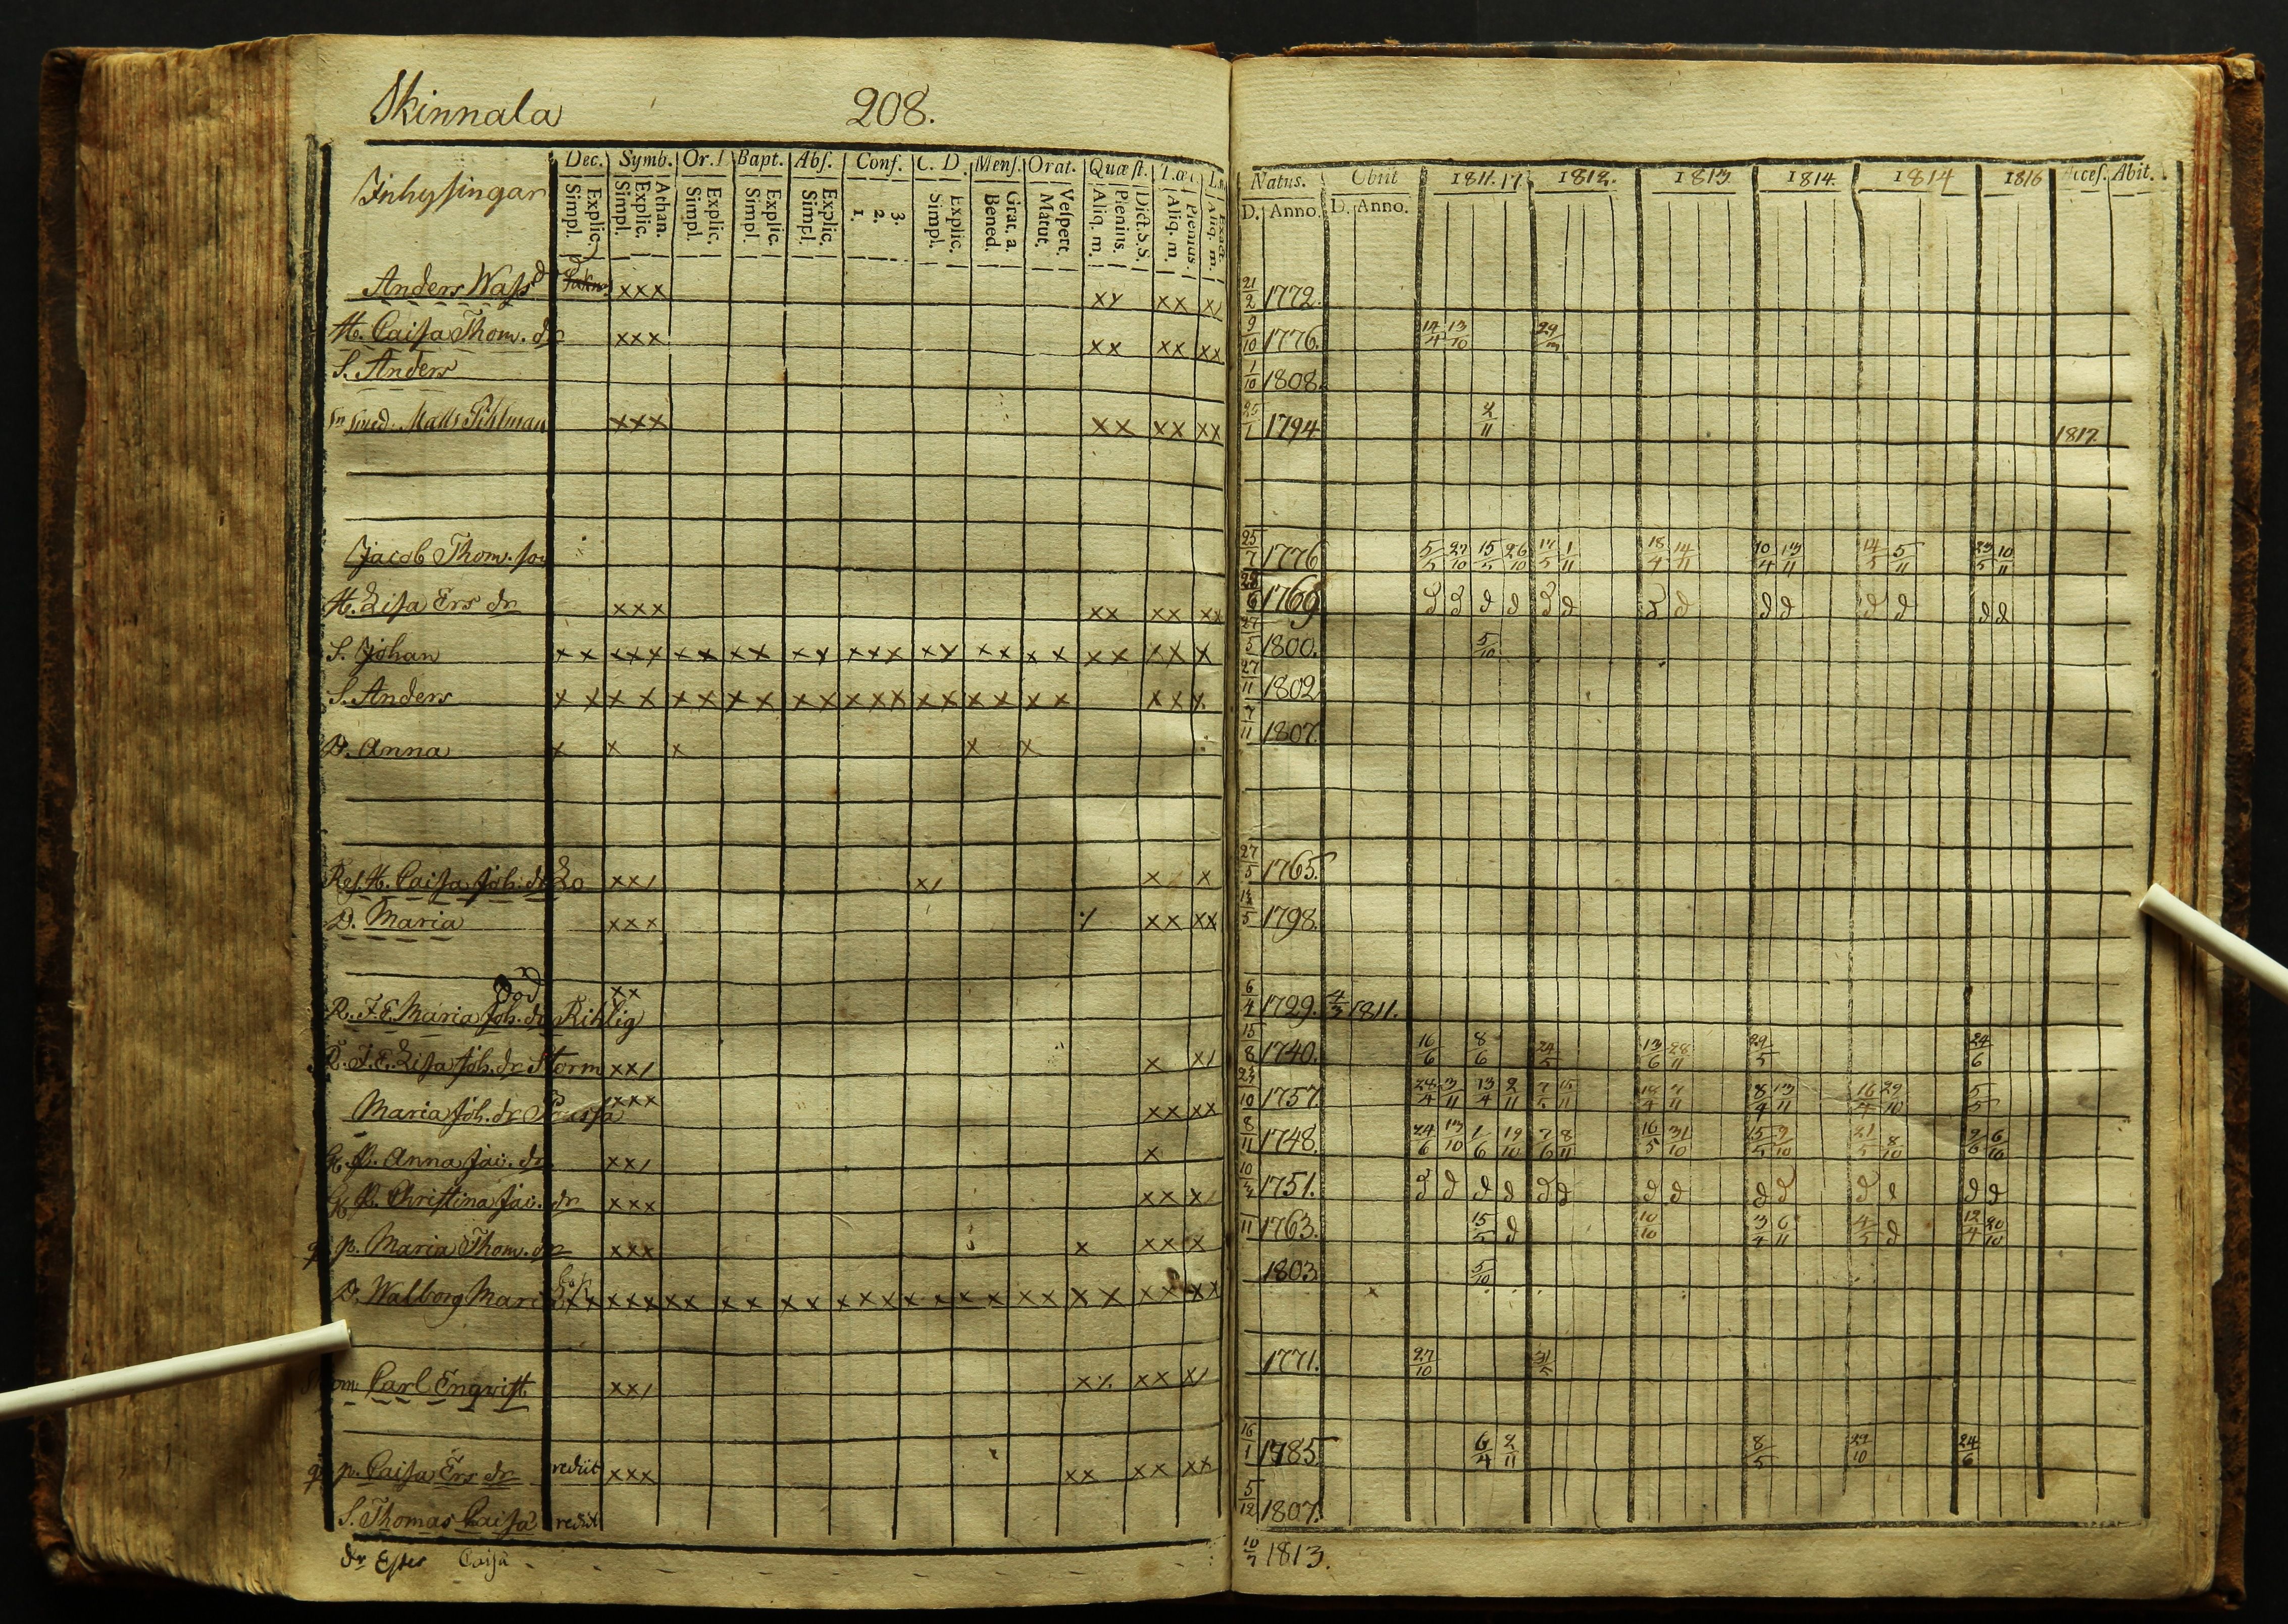 Skinnala 208.
Inhysingar
Dec. Symb. Or. D Bapt. Abs. Conf. C. D. Mens. Orat. Quæst.
Explic. Simpl. Athan. Explic. Simpl. Explic. Simpl. Explic. Simpl. Explic. Simpl. 3. 2. 1. Explic. Simpl. Grat. a. Bened. Vespert. Matut. Dict. S. S. Plenius. Aliq. m. Plenius. Aliq. m. Exact. Aliq. m.
Natus. Obiit 1811. 17 1812. 1813 1814. 1814 1816 Acces. Abit.
D. Anno. D. Anno.
Anders Wass xxx xx xx 21/2 1772.
H. Caisa Thom. dr xxx xx xx xx 9/10 1776. 13/10
S. Anders 1/10 1808.
Matts Pihlman xxx xx xx xx 25/1 1794 2/11 1817
Jacob Thom. son 25/7 1776 5/5 27/10 15/5 26/10 1/11 18/4 14/11 10/4 13/11 14/5 5/11 23/5 10/11
H. Lisa Ers dr xxx xx xx xx 1769 d d d d d d d d d d d d d d
S. Johan xx xxx xx xx xx xxx xx xx xx xx xx x 27/5 1800. 5/10
S. Anders xx xx xx xx xx xxx xx xx xx xx x 27/11 1802
D. Anna x x x x x 7/11 1807
H. Caisa Joh. dr Lo xx/ x/ x x 27/5 1765.
D. Maria xxx xx xx 1798.
Död xx
R. F. E. Maria Joh. dr Rihlig 6/4 1729. 4/3 1811.
R. F. E. Lisa Joh. dr Storm xx/ x x/ 15/8 1740. 16/6 8/6 24/5 13/6 28/11 29/5 24/6
Maria Joh. dr xxx xx xx 1757. 24/4 3/11 13/4 2/11 18/4 7/11 18/4 13/11 16/4 29/10 5/5
Q. P. Anna Jac. dr xx/ x 8/11 1748. 24/6 13/10 1/6 19/10 7/6 8/11 16/5 31/10 15/5 9/10 21/5 8/10 9/6 6/10
Q. P. Christina Jac. dr xxx xx x/ 1751. d d d d d d d d d d d d d d
q. p. Maria Thom. dr xxx x xx x 11 1763. 15/5 d 10/10 3/4 6/11 4/5 d 12/4 20/10
D. Walborg Maria xx xxx xx xx xx xxx xx xx xx xx xx xx 1803 5/10
Carl Engvist xx/ xx xx x/ 1771. 27/10
q. p. Caisa Ers dr rediit xxx xx xx xx 16/1 1785 6/4 2/11 8/5 29/10 24/6
S. Thomas Caisä rediit 5/12 1807.
dr Ester Caisä 1813.